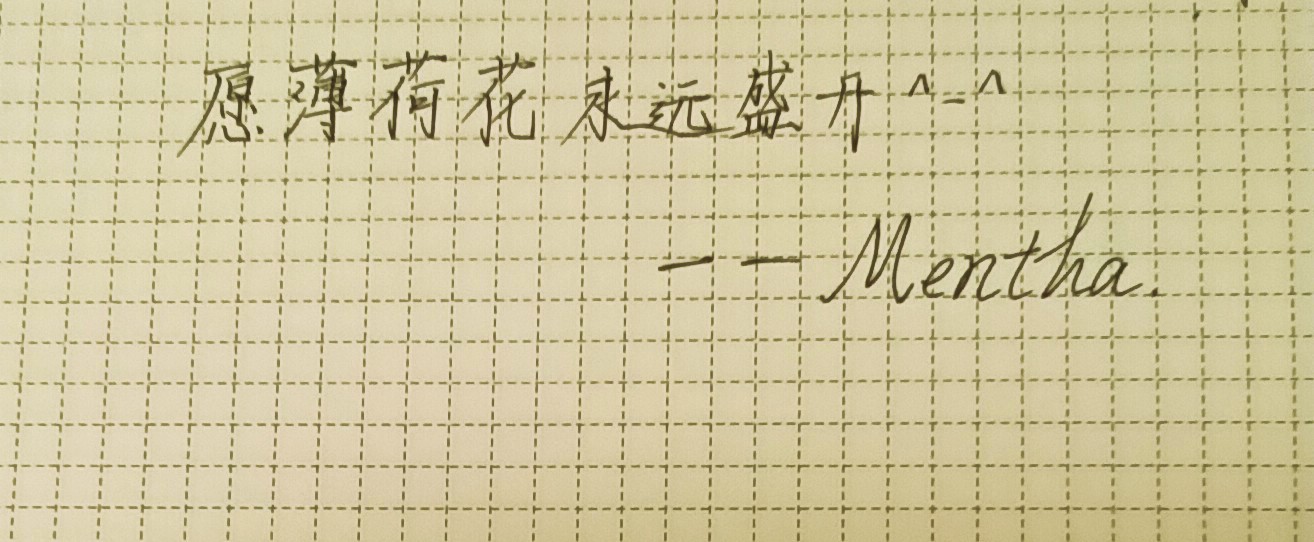 愿薄荷花永远盛开^-^
——Mentha.